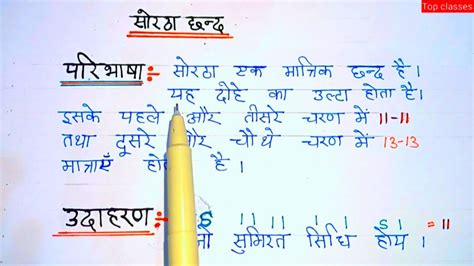 Top classes
सोरठा छन्द
परिभाषा:- सोरठा एक मात्रिक छन्द है।
यह दोहे का उल्टा होता है।
इसके पहले और तीसरे चरण में 11-11
तथा दूसरे और चौथे चरण में 13-13
मात्राएँ है।
उदाहरण:- S I I I I I I S I = 11
सुमिरत सिधि होय।